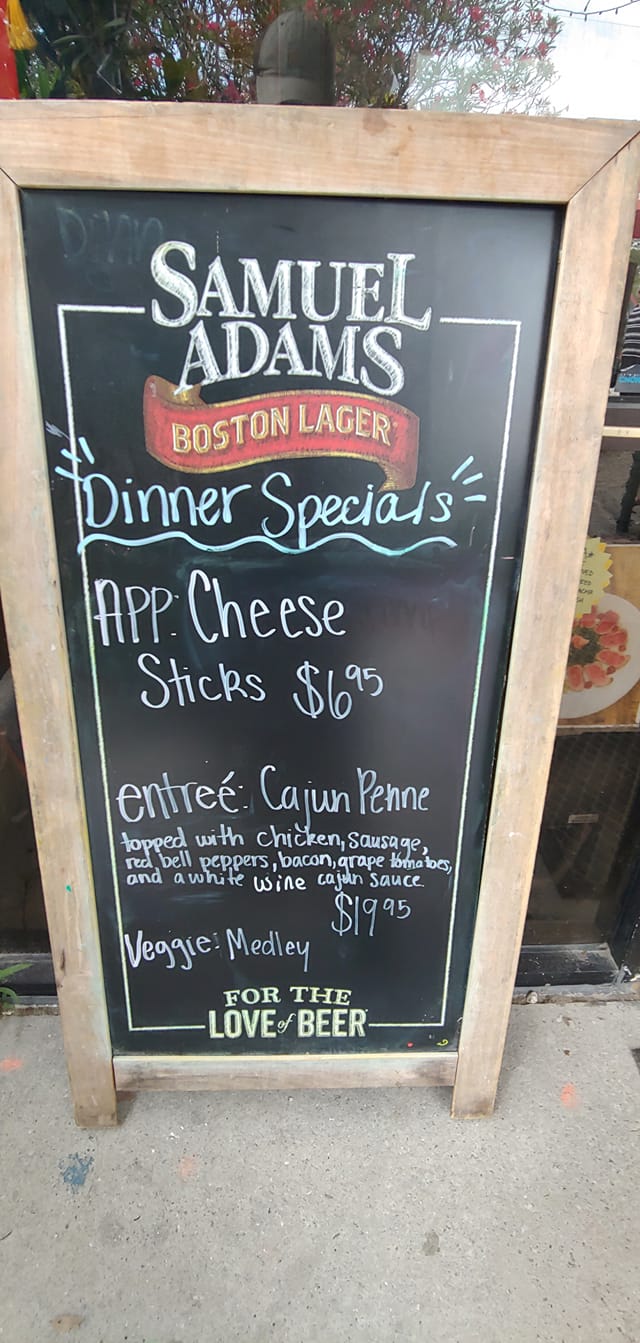 SAMUEL
ADAMS
BOSTON LAGER
Dinner Specials
APP: Cheese
Sticks $695
entreé: Cajun Penne
topped with chicken, sausage,
red bell peppers, bacon, grape tomatoes,
and a white wine cajun sauce
$1995
Veggie: Medley
FOR THE
LOVE of BEER